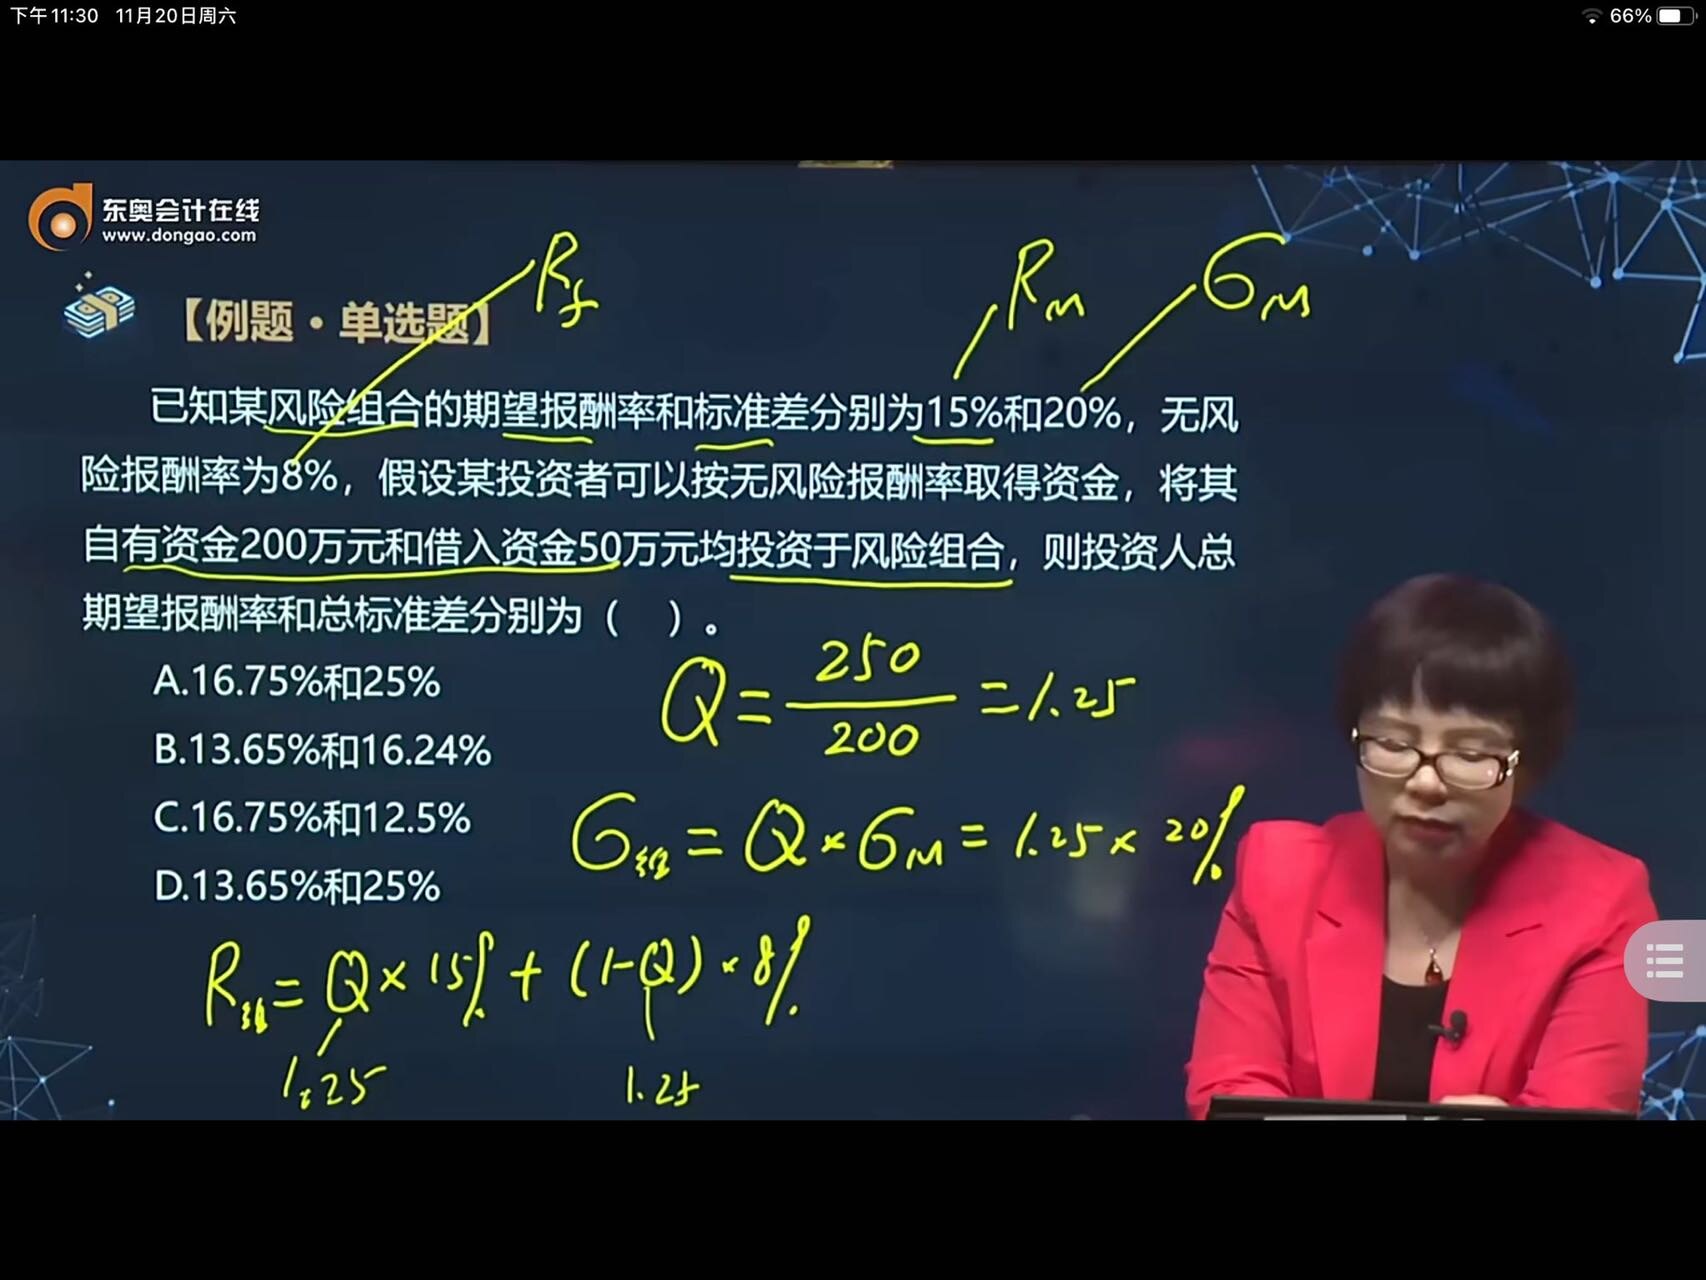 下午11:30 11月20日周六
66%
东奥会计在线
www.dongao.com
Rf
RM
σM
【例题·单选题】
已知某风险组合的期望报酬率和标准差分别为15%和20%，无风
险报酬率为8%，假设某投资者可以按无风险报酬率取得资金，将其
自有资金200万元和借入资金50万元均投资于风险组合，则投资人总
期望报酬率和总标准差分别为（ ）。
Q=250/200=1.25
A.16.75%和25%
B.13.65%和16.24%
C.16.75%和12.5%
D.13.65%和25%
σ组=Q×σM=1.25×20%
R组=Q×15%+(1-Q)×8%
1.25
1.25